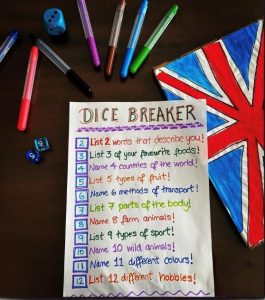 DICE BREAKER
2 List 2 words that describe you!
3 List 3 of your favourite foods!
4 Name 4 countries of the world!
5 List 5 types of fruit!
6 Name 6 methods of transport!
7 List 7 parts of the body!
8 Name 8 farm animals!
9 List 9 types of sport!
10 Name 10 wild animals!
11 Name 11 different colours!
12 List 12 different hobbies!